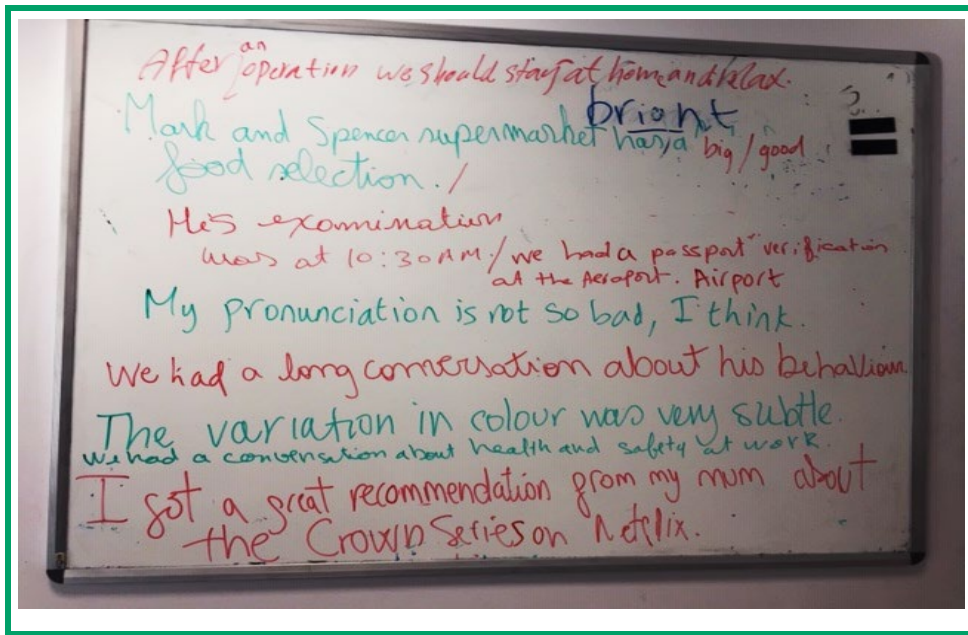 After an operation we should stay at home and relax.
bright
Mark and Spencer supermarket has a big / good
food selection. /
His examination
was at 10:30 AM. / we had a passport verification
at the Aeroport. Airport
My pronunciation is not so bad, I think.
We had a long conversation about his behaviour
The variation in colour was very subtle.
We had a conversation about health and safety at work.
I got a great recommendation from my mum about
the Crown Series on Netflix.